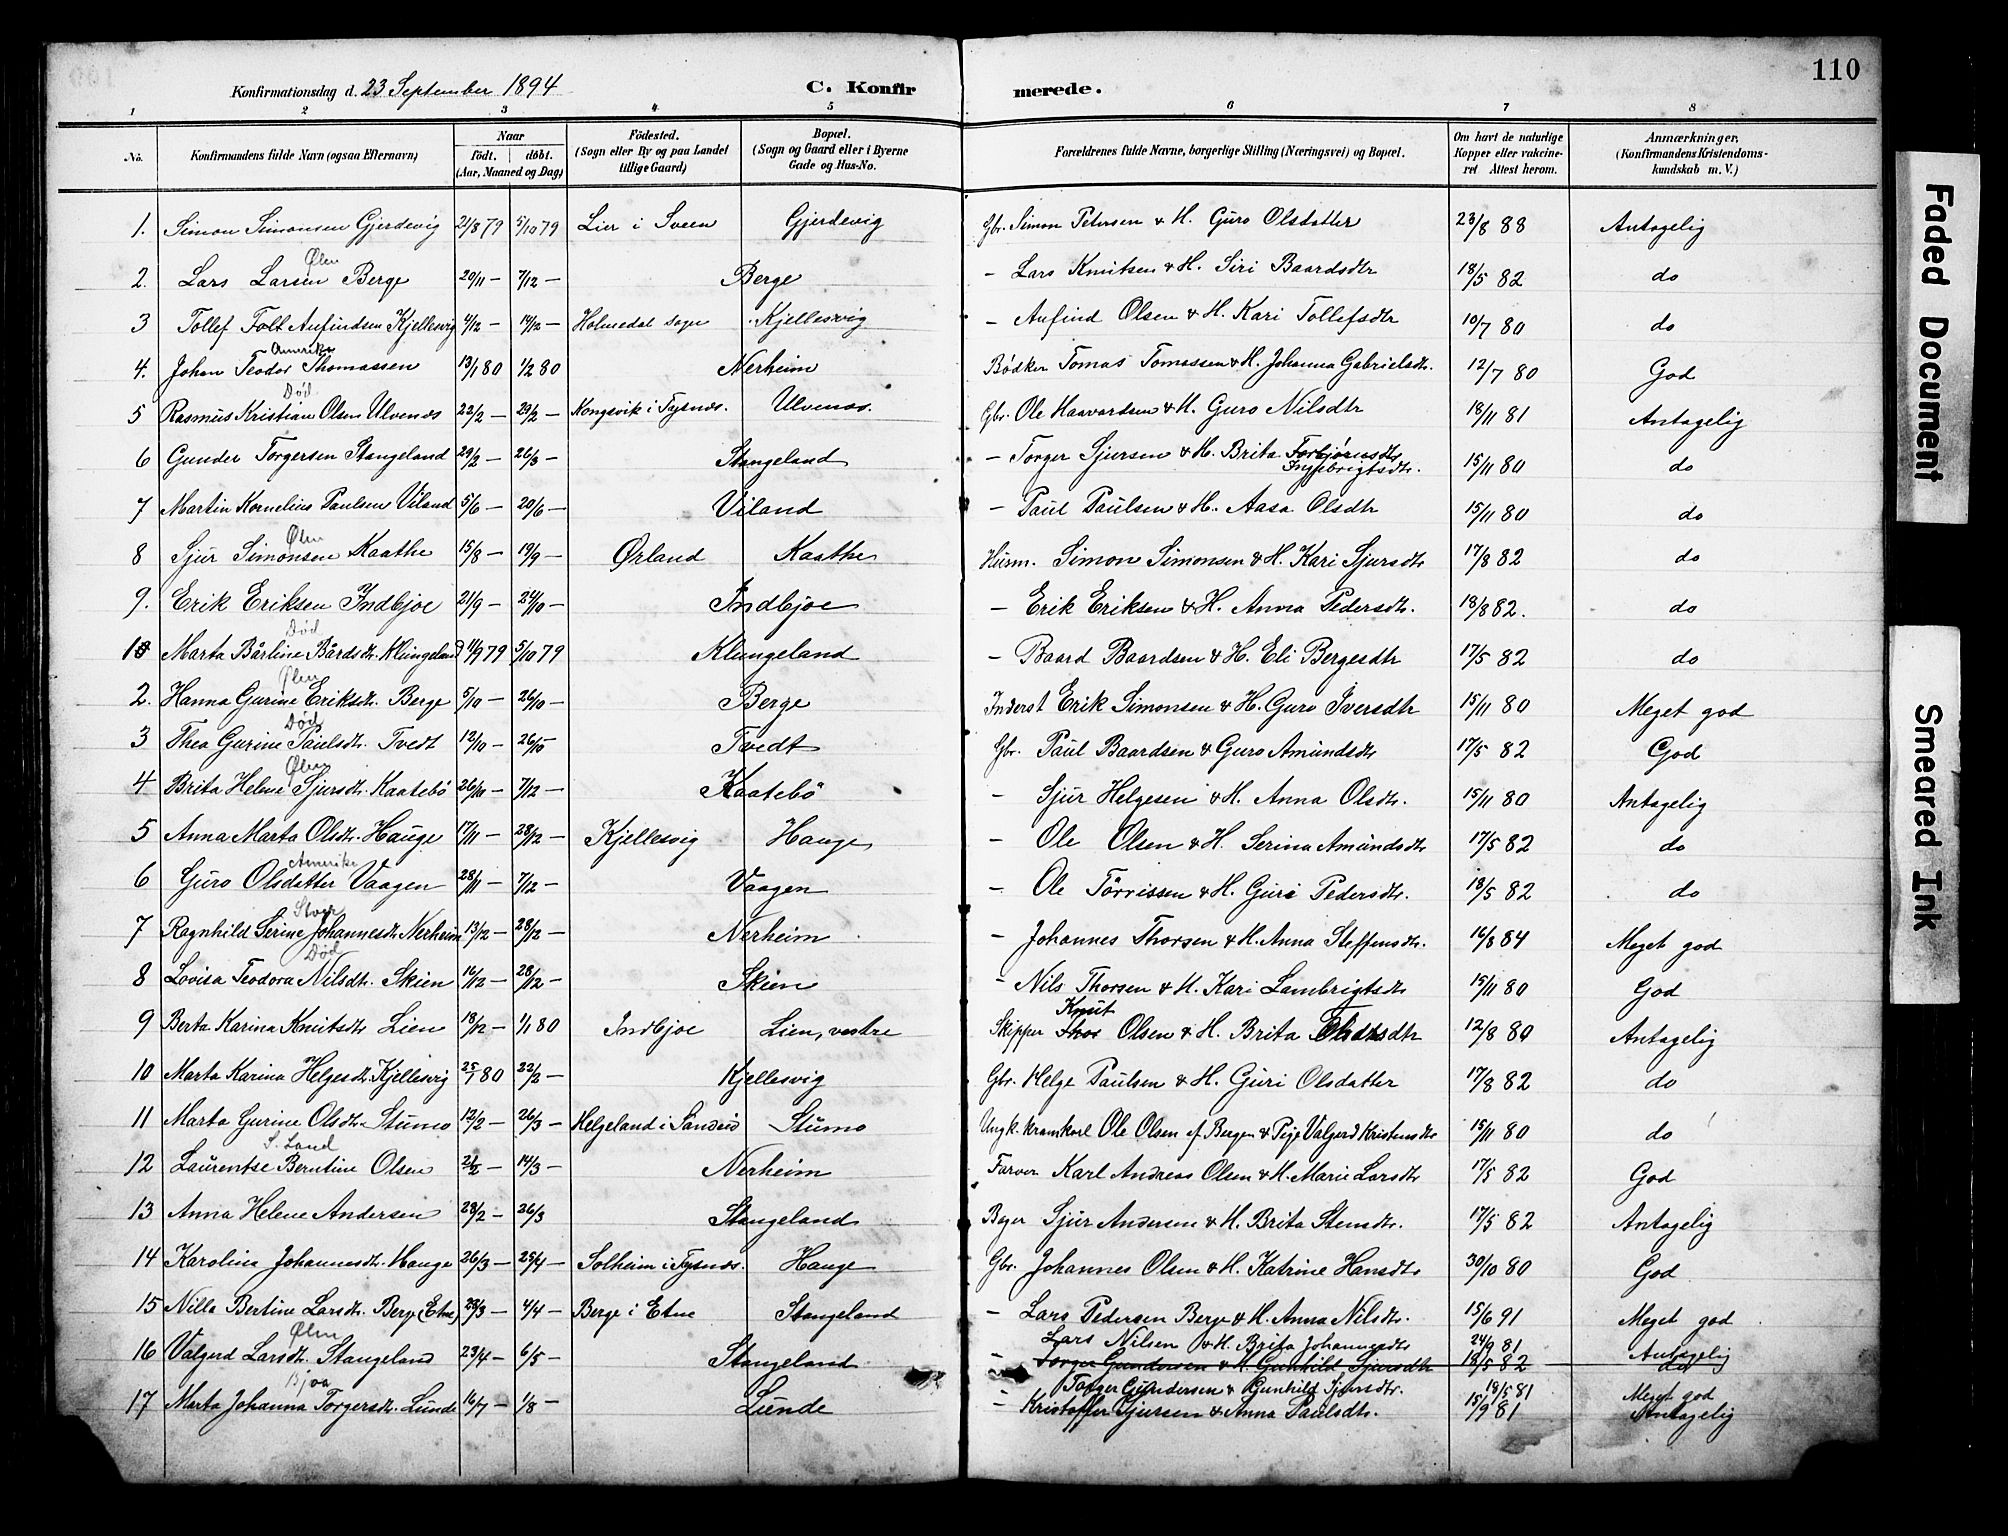 110
Konfirmationsdag d. 23 September 1894 C. Konfirmerede.
1 2 3 4 5 6 7 8
No. Konfirmandens fulde Navn (ogsaa Efternavn) Naar født. døbt. (Aar, Maaned og Dag) Födested. (Sogn eller By og paa Landet tillige Gaard) Bopæl. (Sogn og Gaard eller i Byerne Gade og Hus-No. Forældrenes fulde Navne, borgerlige Stilling (Næringsvei) og Bopæl. Om havt de naturlige Kopper eller vakcineret Attest herom. Anmærkninger. (Konfirmandens Kristendomskundskab m. V.)
1. Simon Simonsen Gjerdevig 21/8 79 5/10 79 Lier i Sveen Gjerdevig Gbr. Simon Petersen & H. Guro Olsdatter 23/8 88 Antagelig
Ølen
2. Lars Larsen Berge 20/11 — 7/12 — Berge - Lars Knutsen & H. Siri Baardsdtr 18/5 82 do
3 Tollef Falt Anfindsen Kjellesvig 4/12 — 14/12 — Holmedal sogn Kjellesvig - Anfind Olsen & H. Kari Tollefsdtr 10/7 80 do
Amerika
4. Johan Teodor Thomassen 13/1 80 1/2 80 Nerheim Bødker Tomas Tomassen & H. Johanna Gabrielsdtr. 12/7 80 God
Død
5 Rasmus Kristian Olsen Ulvenæs 22/2 — 29/2 — Kongsvik i Tysnæs. Ulvenæs. Gbr. Ole Haavardsen & H. Guro Nilsdtr 18/11 81 Antagelig
6 Gunder Torgersen Stangeland 29/2 — 26/3 — Stangeland - Torger Sjursen & H. Brita Torbjørnsdtr Ingebrigtsdtr. 15/11 80 do
7 Martin Kornelius Paulsen Viland 5/6 — 20/6 — Viland - Paul Paulsen & H. Aasa Olsdtr 15/11 80 do
Ølen
8 Sjur Simonsen Kaathe 15/8 — 19/9 — Ørland Kaathe Husm. Simon Simonsen & H. Kari Sjursdtr 17/8 82 do
9. Erik Eriksen Indbjoe 21/9 — 24/10 — Indbjoe - Erik Eriksen & H. Anna Pedersdtr. 18/8 82. do
Død
1 Marta Bårline Bårdsdtr. Klungeland 11/9 79 5/10 79 Klungeland - Baard Baardsen & H. Eli Bergesdtr 17/5 82 do
Ølen
2. Hanna Gurine Eriksdtr. Berge 5/10 — 26/10 — Berge Inderst Erik Simonsen & H. Guro Iversdtr 15/11 80 Meget god
Død
3 Thea Gurine Paulsdtr. Tvedt 12/10 — 26/10 — Tvedt Gbr. Paul Baardsen & Guro Amundsdtr 17/5 82 God
Ølen
4 Brita Helene Sjursdtr. Kaatebö 26/10 — 7/12 — Kaatebö - Sjur Helgesen & H. Anna Olsdtr. 15/11 80 Antagelig
5 Anna Marta Olsdtr. Hauge 17/11 — 28/12 — Kjellesvig Hauge - Ole Olsen & H. Serina Amundsdtr 17/5 82 do
Amerika
6 Guro Olsdatter Vaagen 28/11 — 7/12 — Vaagen - Ole Törrissen & H. Guri Pedersdtr. 18/5 82 do
7 Ragnhild Serine Johannesdtr. Nerheim 13/12 — 28/12 — Nerheim - Johannes Thorsen & H. Anna Steffensdtr. 16/8 84 Meget god
Død
8 Lovisa Teodora Nilsdtr. Skien 16/12 — 28/12 — Skien - Nils Thorsen & H. Kari Lambrigtsdtr 15/11 80 God
9 Berta Karina Knutsdtr Lien 18/12 — 1/1 80 Indbjoe Lien, vestre Skipper Knut Olsen & H. Brita 12/8 80 Antagelig
10 Marta Karina Helgesdtr. Kjellesvig 25/1 80 22/2 — Kjellesvig Gbr. Helge Paulsen & H. Guri Olsdatter 17/8 82 do
11 Marta Gurine Olsdtr. Stumo 12/2 — 26/3 — Helgeland i Sandeid Stumo Ungk. kramkarl Ole Olsen af Bergen & Pige Valgerd Kristensdtr 15/11 80 do
S. Land
12 Laurentse Berntine Olsen 21/2 — 14/3 — Nerheim Farver Karl Andreas Olsen & H. Marie Larsdtr 17/5 82 God
13 Anna Helene Andersen 28/2 — 26/3 Stangeland Bager Sjur Andersen & H. Brita Stensdtr. 17/5 82 Antagelig
14 Karolina Johannesdtr. Hauge 26/3 — 25/4 — Solheim i Tysnæs. Hauge Gbr. Johannes Olsen & H. Katrine Hansdtr 30/10 80 God
15 Nilla Bertine Larsdtr. Berge (Etne) 23/3 — 4/4 — Berge i Etne Stangeland - Lars Pedersen Berge & H. Anna Nilsdtr. 15/6 91 Meget god
Ølen
16 Valgerd Larsdtr. Stangeland 23/4 — 6/5 — Stangeland - Lars Nilsen & H. Brita Johannesdtr 24/9 81 Antagelig
Torger Gundersen & H. Gunhild Sjursdtr 18/5 82 do
Bjoa
17 Marta Johanna Torgersdtr. Lunde 16/7 — 1/8 — Lunde Torger Gundersen & Gunhild Sjursdtr. 18/5 81 Meget god
- Kristoffer Sjursen & Anna Paulsdtr. 15/9 81 Antagelig
Faded Document
Smeared Ink